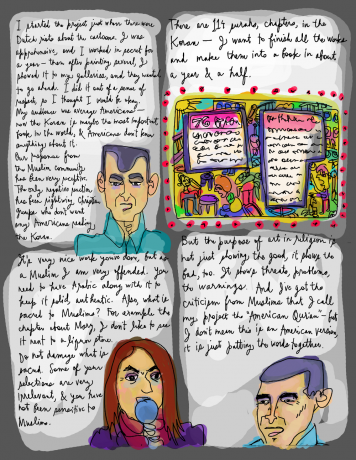 I started the project just when there were
Dutch riots about the cartoons, I was
apprehensive, and I worked in secret for
a year – then after printing several, I
showed it to my galleries, and they wanted
to go ahead. I did it out of a sense of
respect, so I thought I would be okay.
My audience are average Americans –
and the Koran is maybe the most important
book in the world, & Americans don't know
anything about it.
Our response from
the Muslim community
has been very positive.
The only negative reaction
has been rightwing Christian
groups who don't want
any Americans reading
the Koran.
There are 114 surahs, chapters, in the
Koran – I want to finish all the works
and make them into a book in about
a year & a half.
It's very nice work you've done, but as
a Muslim I am very offended. You
need to have Arabic along with it to
keep it solid, authentic. Also, what is
sacred to Muslims? For example the
chapter about Mary, I don't like to see
it next to a
Do not damage what is
sacred. Some of your
selections are very
irrelevant, & you have
not been sensitive to
Muslims.
But the purpose of art in religion is
not just showing the good, it shows the
bad, too. It shows threats, problems,
the warnings. And I've got the
criticism from Muslims that I call
my project the "American Qur'an" – but
I don't mean this is an American version,
it is just putting the words together.